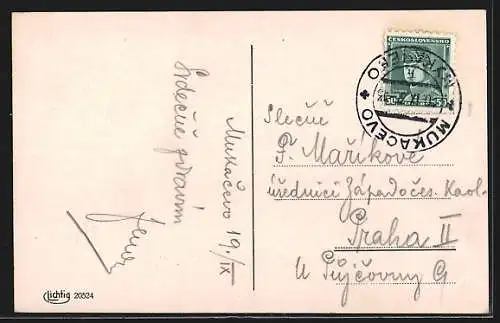 Mukačevo 19./IX
Srdečně zdravím
Slečně
F. Maříkové
úřednici Západočes. Kaol.
Praha II
U Půjčovny 9
ČESKOSLOVENSKO
50 50
MUKAČEVO
Lichtig 20524